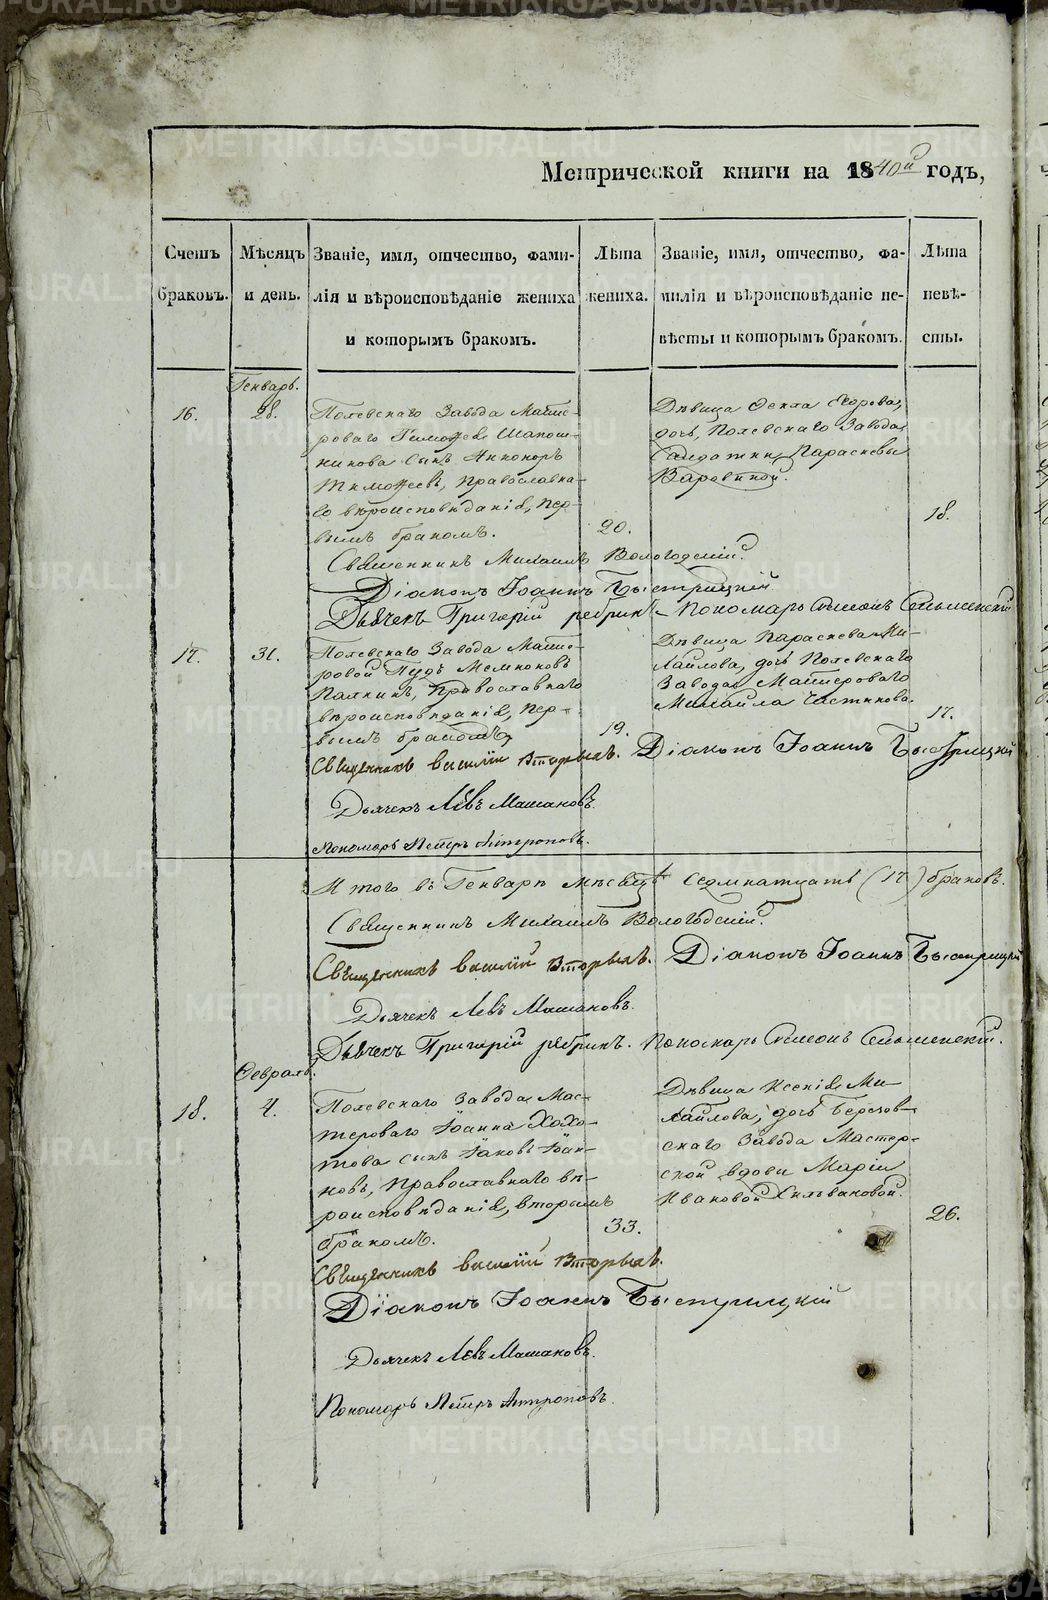 METRIKI.GASO-URAL.RU
Метрической книги на 1840й годъ,
Счетъ браковъ.
Мѣсяцъ и день.
Званіе, имя, отчество, фами-
лія и вѣроисповѣданіе жениха
и которымъ бракомъ.
Лѣта
жениха.
Званіе, имя, отчество, фа-
милія и вѣроисповѣданіе не-
вѣсты и которымъ бракомъ.
Лѣта
невѣ-
сты.
Генварь.
16.
28.
Полевскаго Завода Масте-
роваго Тимофея Шапош-
никова сынъ Никоноръ
Тимофеевъ, православна-
го вѣроисповѣданія, пер-
вымъ бракомъ.
20.
Дѣвица Фекла Егорова,
дочь, Полевскаго Завода
Солдатки Парасковьи
18.
Священникъ Михаилъ Вологодскій.
Діаконъ Іоаннъ Быстрицкій
Дьячекъ Григорій Пономарь Симеонъ
17.
31.
Полевскаго Завода Масте-
ровой
Палкинъ, Православнаго
вѣроисповѣданія, пер-
вымъ бракомъ
19.
Дѣвица Параскева Ми-
хайлова, дочь Полевскаго
Завода Мастероваго
Михайла
17.
Священникъ Василій Вторыхъ. Діаконъ Іоаннъ Быстрицкій
Дьячекъ Левъ
Пономарь Петръ Антроповъ.
Итого въ Генварѣ мѣсяцѣ семнатцать (17) браковъ.
Священникъ Михаилъ Вологодскій.
Священникъ Василій Вторыхъ. Діаконъ Іоаннъ Быстрицкій
Дьячекъ Левъ
Дьячекъ Григорій Пономарь Симеонъ
Февраль.
18.
4.
Полевскаго Завода Мас-
тероваго Іоанна Хохо-
това сынъ Іаковъ Іоан-
новъ, Православнаго вѣ-
роисповѣданія, вторымъ
бракомъ.
33.
Дѣвица Ксенія Ми-
хайлова, дочь Березов-
скаго Завода Мастер-
ской вдовы Маріи
Ивановой
26.
Священникъ Василій Вторыхъ.
Діаконъ Іоаннъ Быстрицкій
Дьячекъ Левъ
Пономарь Петръ Антроповъ.